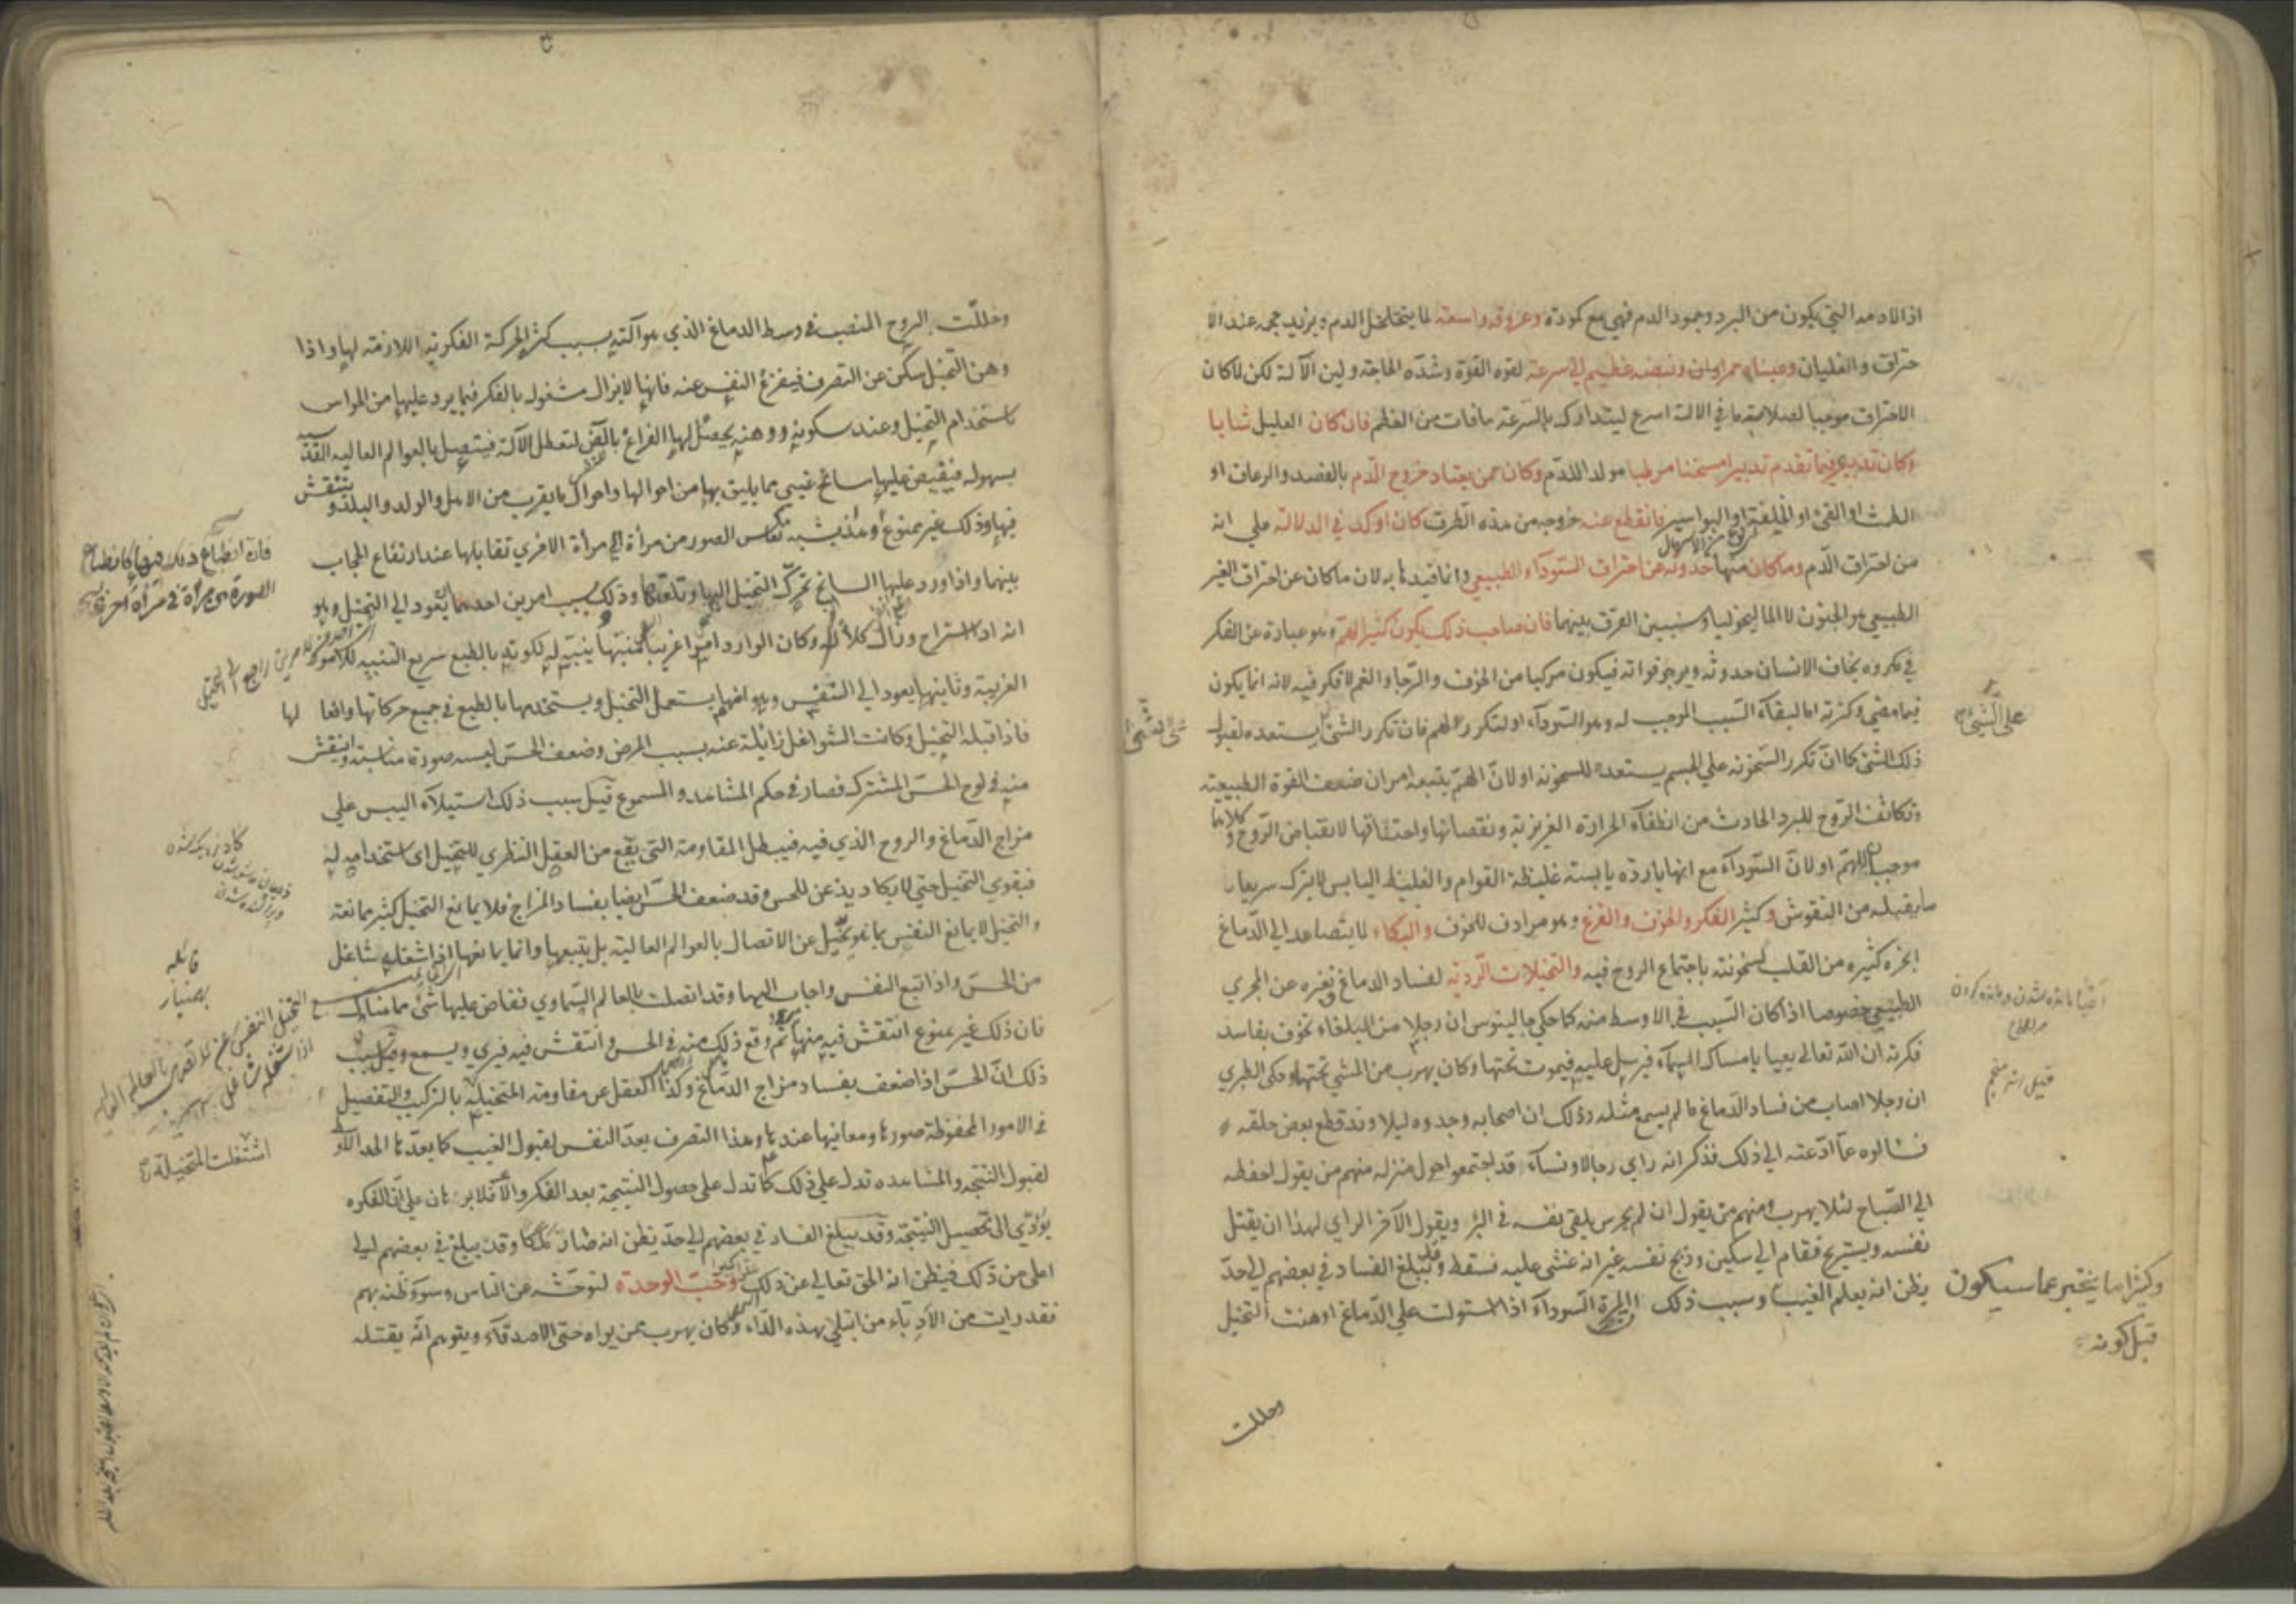 اذ الادمه التي يكون من البرد وجمود الدم فهي مع كمودة وعروقه واسعة لما يتخلخل الدم ويزيد حجمه عند الا
حتراق والغليان وعيناه حمراوان ونبضه عظيم الي سرعة لقوه القوة وشدة الحاجة ولين الآلة لكن لما كان
الاحتراق موجبا لصلابة ما في الالة اسرع ليتدارك بالسرعة ما فات من العظم فان كان العليل شابا
وكان تدبيره فيما تقدم تدبيرا مسخنا مرطبا مولد اللدم وكان ممن يعتاد خروج الدم بالفصد والرعاف او
الطمث او القئ او الخلفة او البواسير فانقطع عنه خروجه من هذه الطرق كان اوكد في الدلالة علي انه
من احتراق الدم وما كان منها حدوثه عن احتراق السوداء الطبيعي وانما قيدنا به لان ما كان عن احتراق الغير
الطبيعي هو الجنون لا الماليخوليا وسنبين الفرق بينهما فان صاحب ذلك يكون كثير الهم وهو عبارة عن الفكر
في مكروه يخاف الانسان حدوثه ويرجو فواته فيكون مركبا من الخوف والرجا والغم لا فكر فيه لانه انما يكون
فيما مضي وكثرته اما لبقاء السبب الموجب له وهو السوداء او لتكرر الهم فان تكرر الشئ يستعده لقبول
ذلك الشئ كما ان تكرر السخونه علي الجسم يستعده للسخونه او لان الهم يتبعه امران ضعف القوة الطبيعية
وتكاثف الروح للبرد الحادث من انطفاء الحرارة الغريزية ونقصانها واحتقاقها لانقباض الروح وكلاهما
موجبان للهم او لان السوداء مع انها باردة يابسة غليظة القوام والغليظ اليابس لا يترك سريعا
ما يقبله من النقوش وكثير الفكر والخوف والفزع وهو مرادف للخوف والبكاء لما يتصاعد الي الدماغ
ابخرة كثيره من القلب لسخونته باجتماع الروح فيه والتخيلات الردية لفساد الدماغ وتغيره عن المجري
الطبيعي خصوصا اذا كان السبب في الاوسط منه كما حكي جالينوس ان رجلا من البلغاء تخوف بفاسد
فكرته ان الله تعالي يعيا بامساك السماء فيرسل عليه فيموت تحتها وكان يهرب من المشي تحتها وحكي الطبري
ان رجلا اصاب من فساد الدماغ ما لم يسمع مثله وذلك ان اصحابه وجدوه ليلا وقد قطع بعض حلقه
فسالوه عما ادعته الي ذلك فذكر انه راي رجالا ونساء قد اجتمعوا حول منزله منهم من يقول احفظه
الي الصباح لئلا يهرب ومنهم من يقول ان لم يحرس يلقي نفسه في البئر ويقول الآخر الراي لهذا ان يقتل
نفسه ويستريح فقام الي سكين وذبح نفسه غير انه غشي عليه فسقط وقد يبلغ الفساد في بعضهم الي حد
يظن انه يعلم الغيب وسبب ذلك المرة السوداء اذا استولت علي الدماغ اوهنت التخيل
وكثيرا ما يخبر عما سيكون
قبل كونه
علي الشئ
قيل انه منجم
وحللت
وحللت الروح المنصب في وسط الدماغ الذي هو آلته بسبب كثرة الحركة الفكرية اللازمة لها واذا
وهن التخيل سكن عن التصرف فيفرغ النفس عنه فانها لا يزال مشغوله بالفكر فيما يرد عليها من الحواس
باستخدام التخيل وعند سكونه ووهنه يحصل لها الفراغ بالعرض لتعطل الآلة فيتصل بالعوالم العاليه القدسية
بسهوله فيفيض عليها سانح غيبي مما يليق بها من احوالها واحوال ما يقرب من الاهل والولد والبلد و تنتقش
فيها وذلك غير ممنوع وهذا يشبه انعكاس الصور من مرأة الي مرأة الاخري تقابلها عند ارتفاع الحجاب
بينهما واذا ورد عليها السانح تحرك التخيل اليها وتلقاها وذلك بسبب امرين احدهما يعود الي التخيل وهو
انه اذا استراح وزال كلاله وكان الوارد امرا غريبا منبها ينبه له لكونه بالطبع سريع التنبيه للامور
الغريبة وثانيهما يعود الي النفس وهو انها يستعمل التخيل ويستخدمها بالطبع في جميع حركاتها وافعالها
فاذا قبله التخيل وكانت الشواغل زايلة عنه بسبب المرض وضعف الحس لبسه صورة مناسبة وانتقش
منه في لوح الحس المشترك فصار في حكم المشاهد والمسموع قيل سبب ذلك استيلاء اليبس علي
مزاج الدماغ والروح الذي فيه فيبطل المقاومة التي يقع من العقل النظري للتخيل اي استخدامه له
فيقوي التخيل حتي لا يكاد يذعن للحس وقد ضعف الحس ايضا بفساد المزاج فلا يمانع التخيل كثير ممانعة
والتخيل لا يمانع النفس بما هو تخيل عن الاتصال بالعوالم العالية بل يتبعها وانما يمانعها اذا شغله شاغل
من الحس واذا تبع النفس واجاب اليها وقد اتصلت بالعالم السماوي تفاض عليها شئ مما هناك
فان ذلك غير ممنوع انتقش فيه منها ثم وقع ذلك منه في الحس وانتقش فيه فيري ويسمع وقيل سبب
ذلك ان الحس اذا ضعف بفساد مزاج الدماغ وكذا العقل عن مقاومة المتخيلة بالتركيب والتفصيل
في الامور المحفوظة صورها ومعانيها عندها وهذا التصرف يعد النفس لقبول الغيب كما يعدها الحد الاوسط
لقبول النتيجه والمشاهده تدل علي ذلك كما تدل علي حصول النتيجة بعد الفكر والا فلا برهان علي ان الفكره
يؤدي الي تحصيل النتيجة وقد يبلغ الفساد في بعضهم الي حد يظن انه صار ملكا وقد يبلغ في بعضهم الي
اعلي من ذلك فيظن انه الحق تعالي عن ذلك وحب الوحدة لتوحشه عن الناس وسوء ظنه بهم
فقد رايت من الأدباء من ابتلي بهذه الداء وكان يهرب ممن يراه حتي الاصدقاء ويتوهم انه يقتله
فان انطباع ذلك فيها كانطباع
الصورة من مرأة في مرأة اخري
قائله
بهمنيار
اشتغلت المتخيلة